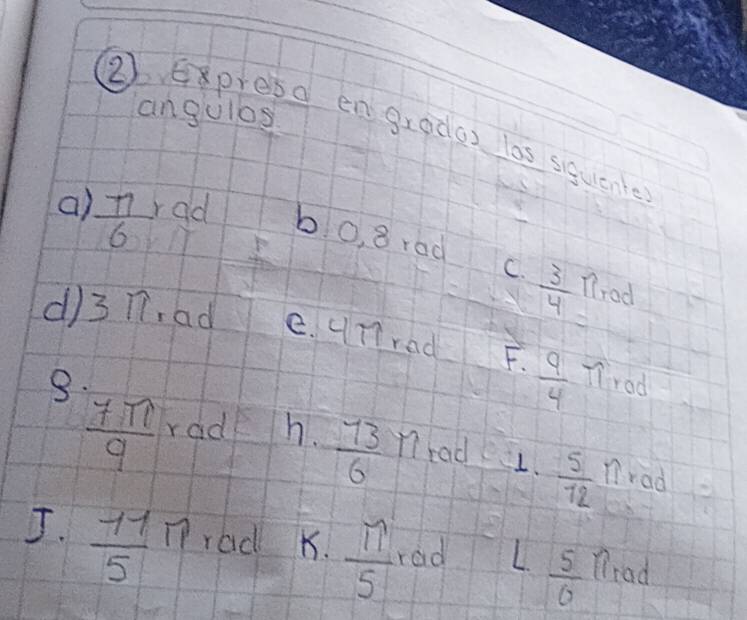 ② Expresa en grados los siguientes
angulos.
a) π/6 rad b. 0,8 rad c. 3/4 π rad
d) 3 π rad e. 4 π rad F. 9/4 π rad
g. 7π/9 rad h. 13/6 π rad I. 5/12 π rad
J. 11/5 π rad K. π/5 rad L 5/6 π rad